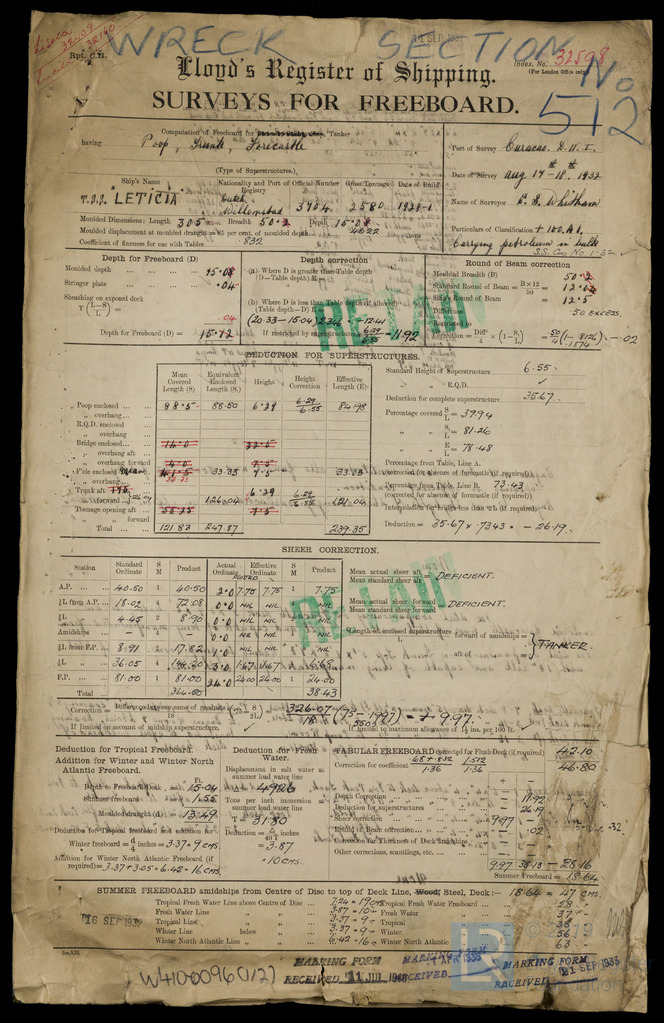 WRECK SECTION No 512
11 SEP 193
Rpt. C.11.
Index. No. 32598
(For London Office only)
Lloyd's Register of Shipping.
SURVEYS FOR FREEBOARD.
Computation of Freeboard for Tanker
having Poop, Trunk, Forecastle
(Type of Superstructures).
Port of Survey Curacao. D.W.I.
Date of Survey Aug 17-18. 1932
Name of Surveyor
Ship's Name Nationality and Port of Registry Official Number Gross Tonnage Date of Build
T.S.S. LETICIA Dutch Willemstad 3904 2580 1928-1
Moulded Dimensions: Length 305 Breadth 50.2 Depth
Moulded displacement at moulded draught = 85 per cent. of moulded depth 4622
Coefficient of fineness for use with Tables .832
Particulars of Classification + 100.A1.
Carrying petroleum in bulk
Depth for Freeboard (D)
Moulded depth
Stringer plate .04
Sheathing on exposed deck
T (L-S/L) .04
Depth for Freeboard (D) = 15.12
Depth correction
(a) Where D is greater than Table depth
(D—Table depth) R =
(b) Where D is less than Table depth (if allowed)
(Table depth—D) R =
(20.33 - 15.04) 2.346 = - 12.41
If restricted by superstructures 6.29/6.55 - 11.92
RE-LAID
Round of Beam correction
Moulded Breadth (B) 50.2
Standard Round of Beam = B×12/50 = 12.04
Ship's Round of Beam = 12.5
Difference .50 EXCESS.
Restricted to
Correction = Diff/4 × (1-S/L) = .50/4 (1-.8126) = -.02
.1874
DEDUCTION FOR SUPERSTRUCTURES.
Mean Covered Length (S) Equivalent Enclosed Length (S₁) Height Height Correction Effective Length (E)
Poop enclosed 88.5 88.50 6.29 6.29/6.55 84.98
„ overhang
R.Q.D. enclosed
„ overhang
Bridge enclosed
„ overhang aft
„ overhang forward
F'cle enclosed 33.33 7.5 33.33
„ overhang
Trunk aft
„ forward 126.04 6.29 6.29/6.55 121.04
Tonnage opening aft
„ forward
Total 121.83 247.87 239.35
Standard Height of Superstructure 6.55
„ „ R.Q.D. ✓
Deduction for complete superstructure 35.67
Percentage covered S/L = 39.94
„ „ S₁/L = 81.26
„ „ E/L = 78.48
Percentage from Table, Line A.
(corrected for absence of forecastle (if required))
Percentage from Table, Line B. 73.43
(corrected for absence of forecastle (if required))
Interpolation for bridge less than .2L (if required)
Deduction = 35.67 × .7343 = - 26.19.
SHEER CORRECTION.
Station Standard Ordinate S M Product Actual Ordinate Effective Ordinate S M Product
A.P. 40.50 1 40.50 2.0 7.75 7.75 1 7.75
⅙L from A.P. 18.02 4 72.08 0.0 NIL NIL 4 NIL
⅓L „ 4.45 2 8.90 0.0 NIL NIL 2 NIL
Amidships 0.0
⅓L from F.P. 8.91 2 17.82 1.0 NIL NIL 2 NIL
⅙L „ 36.05 4 144.20 3.0 1.67 1.67 4 6.68
F.P. 81.00 1 81.00 24.0 24.00 24.00 1 24.00
Total 364.50 38.43
Mean actual sheer aft
Mean standard sheer aft = DEFICIENT.
Mean actual sheer forward
Mean standard sheer forward = DEFICIENT.
Length of enclosed superstructure forward of amidships =
„ „ aft of „ =
} TANKER.
RE-LAID
Correction = Difference between sums of products/18 (.75 - S/2L) = 326.07/18 (.75 - .1997) = + 9.97.
.5503
If limited on account of midship superstructure.
If limited to maximum allowance of 1½ ins. per 100 ft.
Deduction for Tropical Freeboard.
Addition for Winter and Winter North Atlantic Freeboard.
Depth to Freeboard Deck = 15.04
Summer freeboard = 1.55
Moulded draught (d) = 13.49
Deduction for Tropical freeboard and addition for Winter freeboard = d/4 inches = 3.37 = 9 cms.
Addition for Winter North Atlantic Freeboard (if required) = 3.37 + 3.05 = 6.42 = 16 cms
Deduction for Fresh Water.
Displacement in salt water at summer load water line
Δ = 4926
Tons per inch immersion at summer load water line
T = 31.80
Deduction = Δ/40T inches
= 3.87
= 10 cms.
TABULAR FREEBOARD corrected for Flush Deck (if required) 42.10
Correction for coefficient .68+.832/1.36 1.512/1.36 46.80
+ −
Depth Correction 11.92
Deduction for superstructures 26.19
Sheer correction 9.97 -
Round of Beam correction - .02
Correction for Thickness of Deck amidships
Other corrections, scantlings, etc.
9.97 38.13 - 28.16
Summer Freeboard = 18.64
SUMMER FREEBOARD amidships from Centre of Disc to top of Deck Line, Wood, Steel, Deck:— 18.64 = 47 cms
Tropical Fresh Water Line above Centre of Disc 7.24 = 19 cms Tropical Fresh Water Freeboard 28
Fresh Water Line „ „ 3.87 = 10 Fresh Water „ 37
Tropical Line „ „ 3.37 = 9 Tropical „ 38
Winter Line below „ 3.37 = 9 Winter „ 56
Winter North Atlantic Line „ „ 6.42 = 16 Winter North Atlantic „ 63
16 SEP 193
W410-0096(1/2)
MARKING FORM
RECEIVED 11 JUL
MARKING FORM
RECEIVED APR 1935
MARKING FORM
RECEIVED 21 SEP 1933